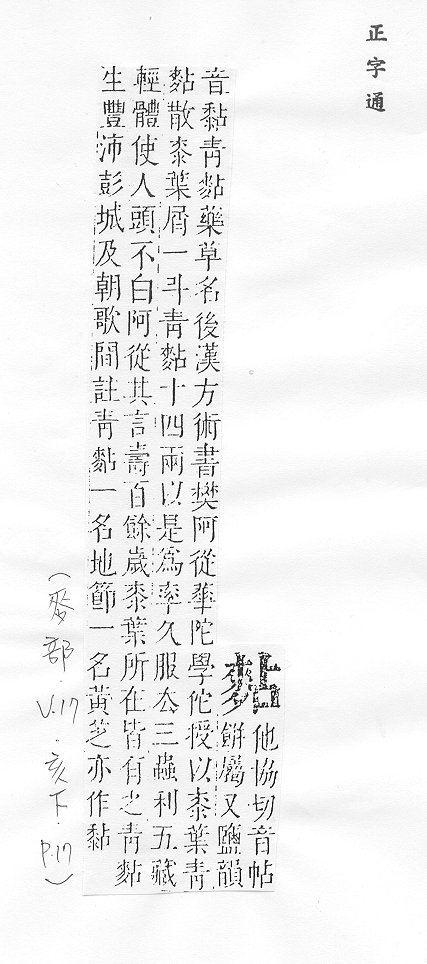 正字通
䴴
他協切音帖
餠屬又鹽韻
音黏青䴴藥草名後漢方術書樊阿從華陀學佗授以桼葉青
䴴散桼葉屑一斗青䴴十四兩以是爲率久服去三蟲利五藏
輕體使人頭不白阿從其言壽百餘歲桼葉所在皆有之青䴴
生豐沛彭城及朝歌間註青䴴一名地節一名黃芝亦作黏
(麥部.V.17.亥下.P.17)